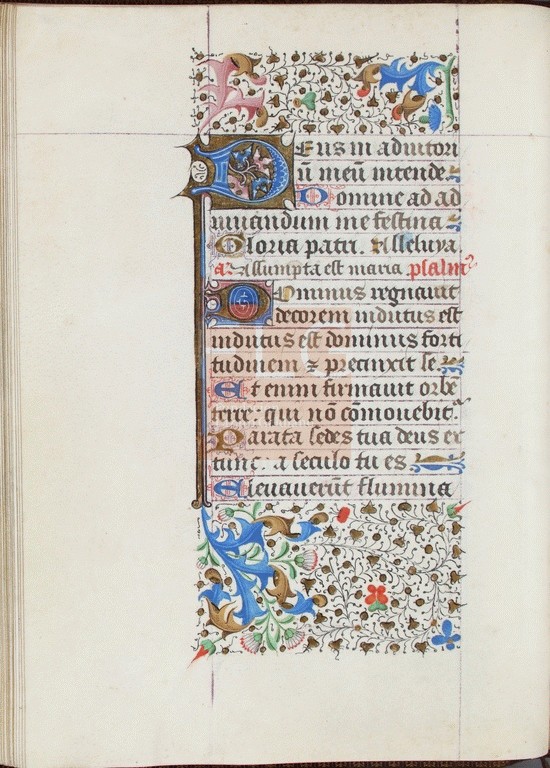 Deus in adiutori
ū meū intende.
Domine ad ad
iuuandum me festina.
Gloria patri. Alleluya.
a. Assumpta est maria psalm̄
Dominus regnauit
decorem indutus est
indutus est dominus forti
tudinem ⁊ precinxit se.
Et enim firmauit orbē
terre: qui nō cōmouebit᷑.
Parata sedes tua deus ex
tunc: a seculo tu es
Eleuauerūt flumina